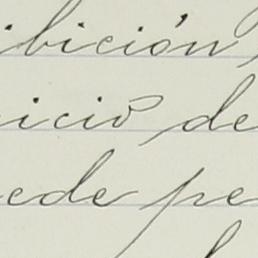 ibición,
icio de
ede pe